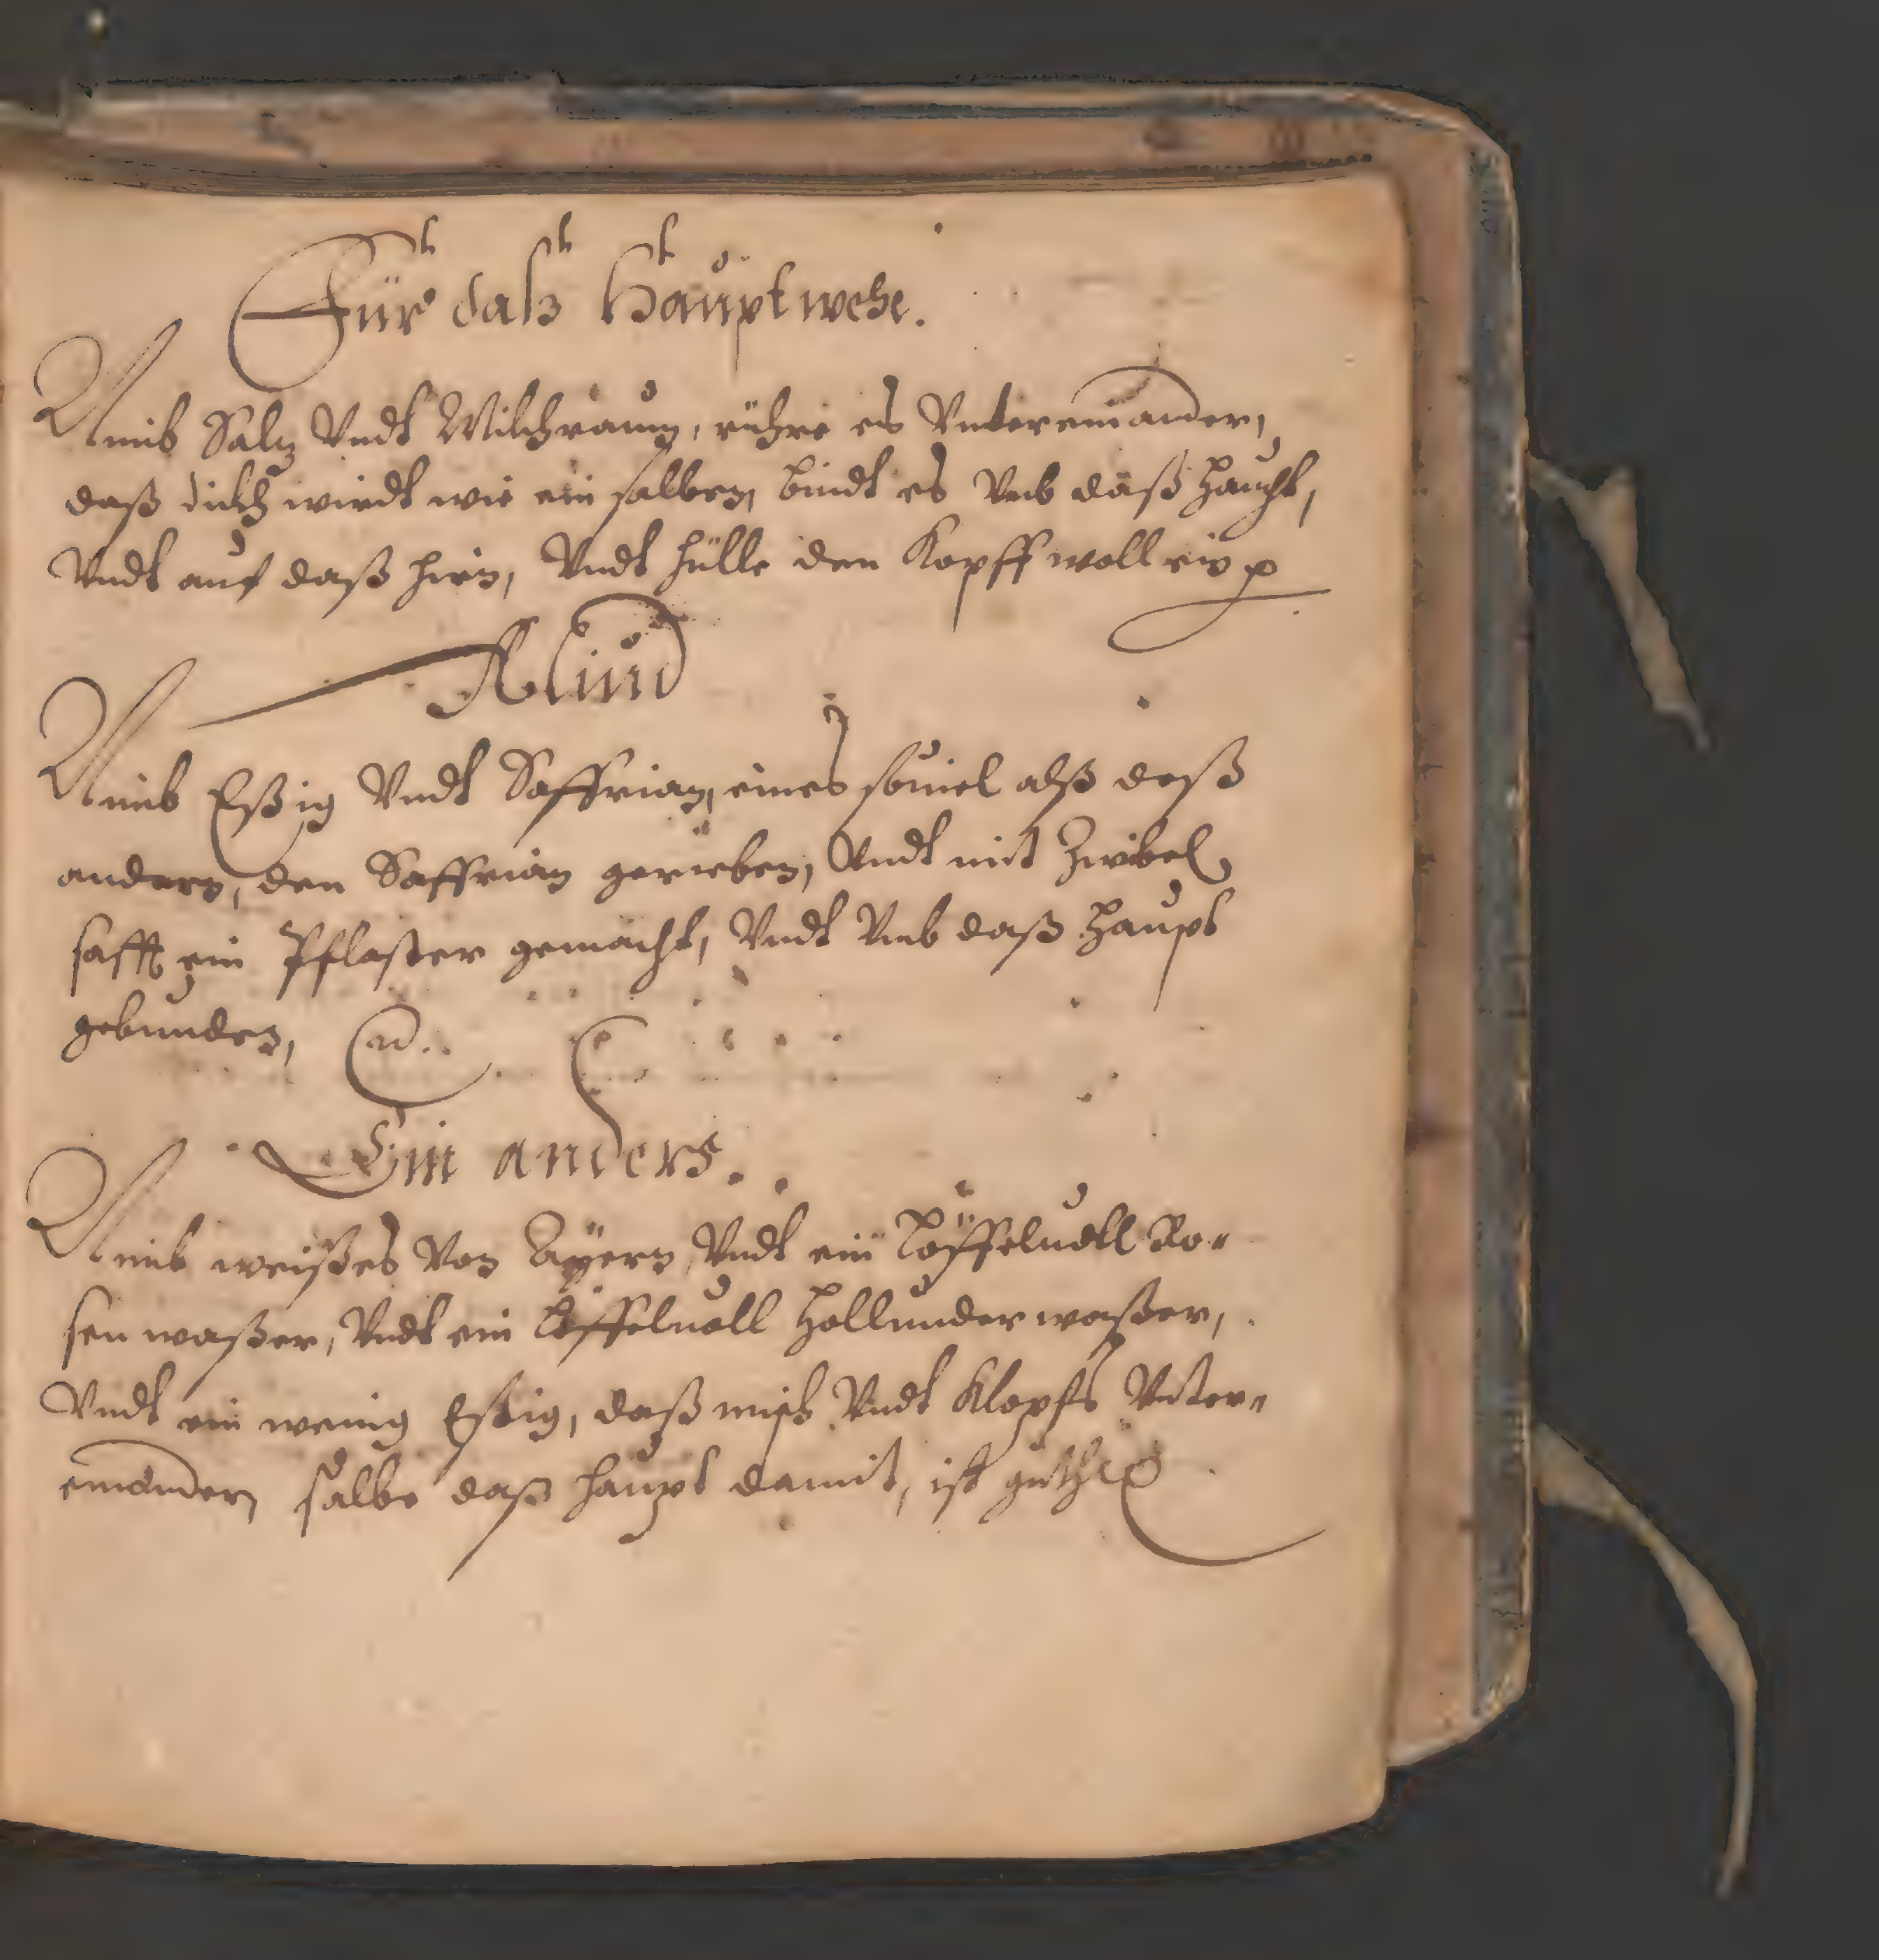 Für daß Hauptwehe.
Nimb Saltz Vndt Milchraum, rühre es Vntereinander,
daß dickh wirdt wie ein salben, bindt es Vmb daß Haupt,
Vndt auf daß hirn, Vndt hülle den Kopff woll ein
Aliud
Nimb Eßig Vndt Saffrian, eines souiel alß deß
andern, den Saffrian gerieben, Vndt mit Zwibel
safft ein Pflaster gemacht, Vndt Vmb daß Haupt
gebunden,
Ein anders.
Nimb weißes Von Ayern, Vndt ein Löffeluoll Ro-
sen waßer, Vndt ein Löffeluoll Hollunder waßer,
Vndt ein wenig Eßig, daß misch Vndt Klopfs Vnter-
einander, salbe daß haupt damit, ist guth